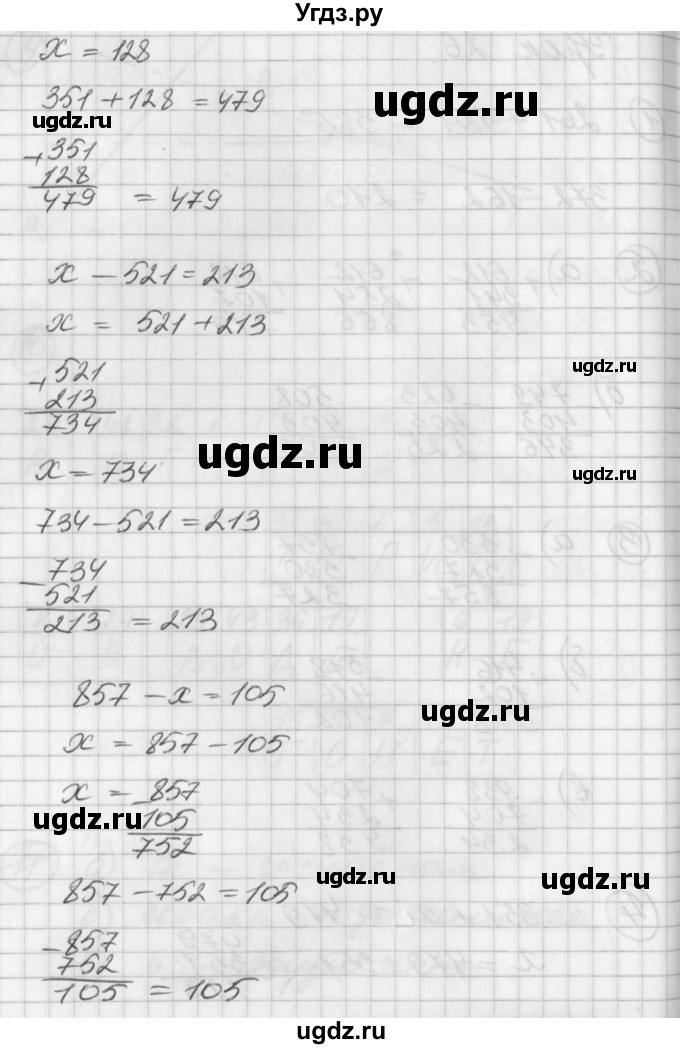 Угдз.ру
x = 128
351 + 128 = 479
ugdz.ru
ugdz.ru
+ 351
128
479 = 479
x - 521 = 213
x = 521 + 213
ugdz.ru
+ 521
213
734
ugdz.ru
x = 734
ugdz.ru
734 - 521 = 213
- 734
521
213 = 213
857 - x = 105
ugdz.ru
x = 857 - 105
x = - 857
ugdz.ru
105
752
ugdz.ru
ugdz.ru
857 - 752 = 105
- 857
752
105 = 105
ugdz.ru